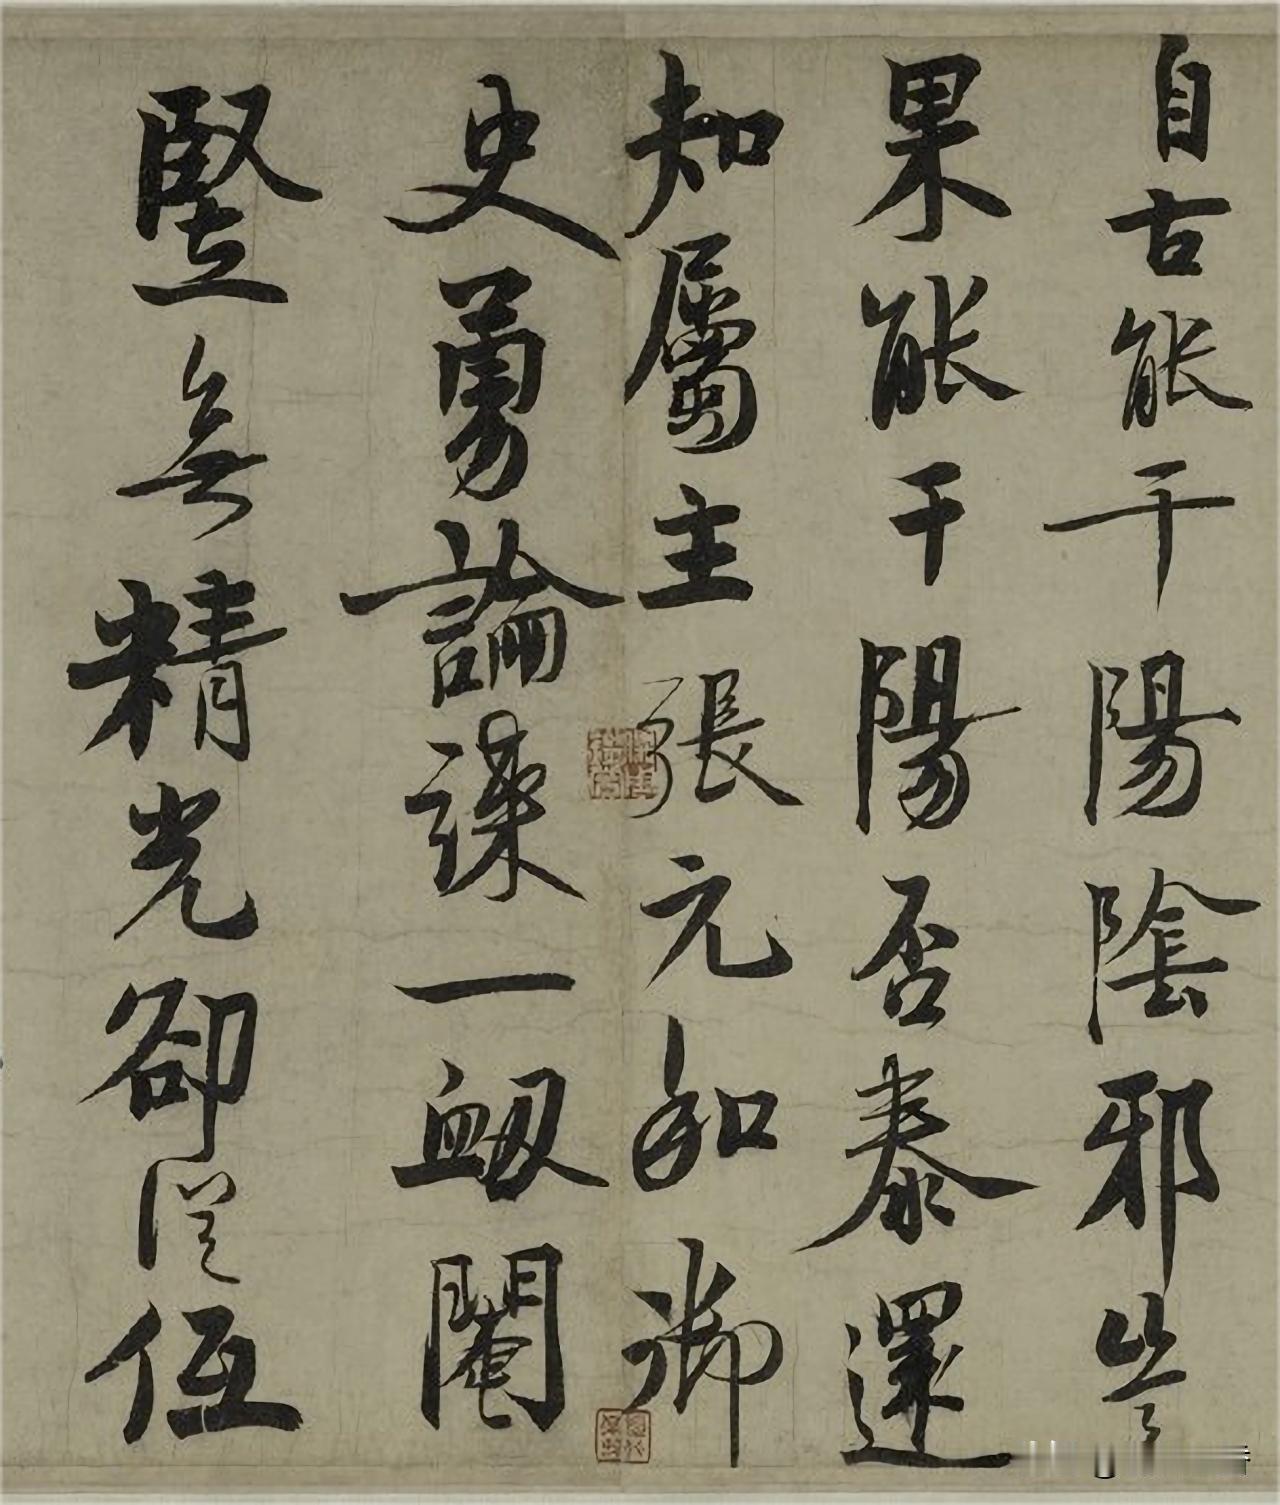 自古能干陽陰邪豈
果能干陽否泰還
知屬主張元和御
史勇論諫一衄閹
豎無精光卻從伍